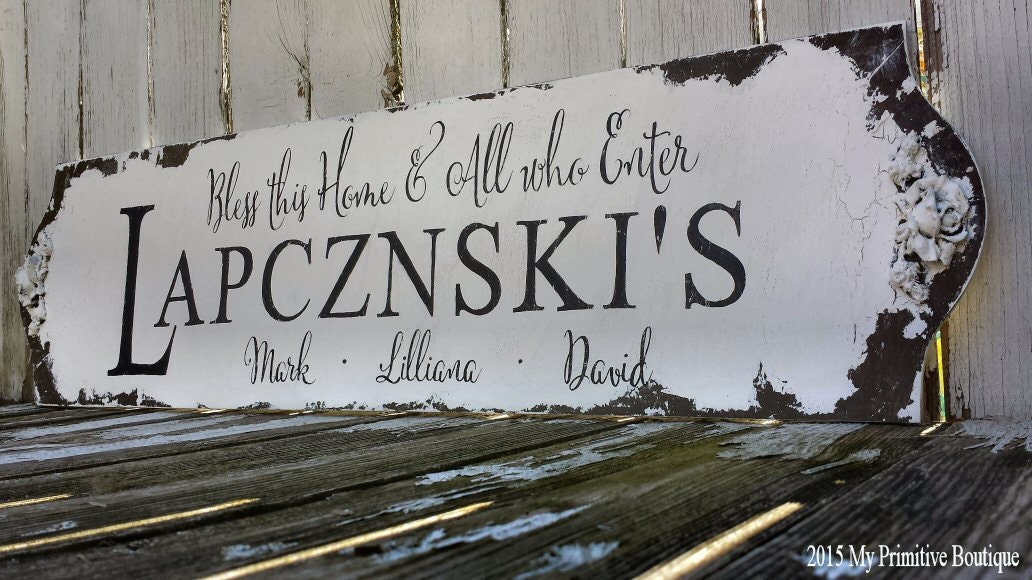 Bless this Home & All who Enter
LAPCZNSKI'S
Mark · Lilliana · David
2015 My Primitive Boutique